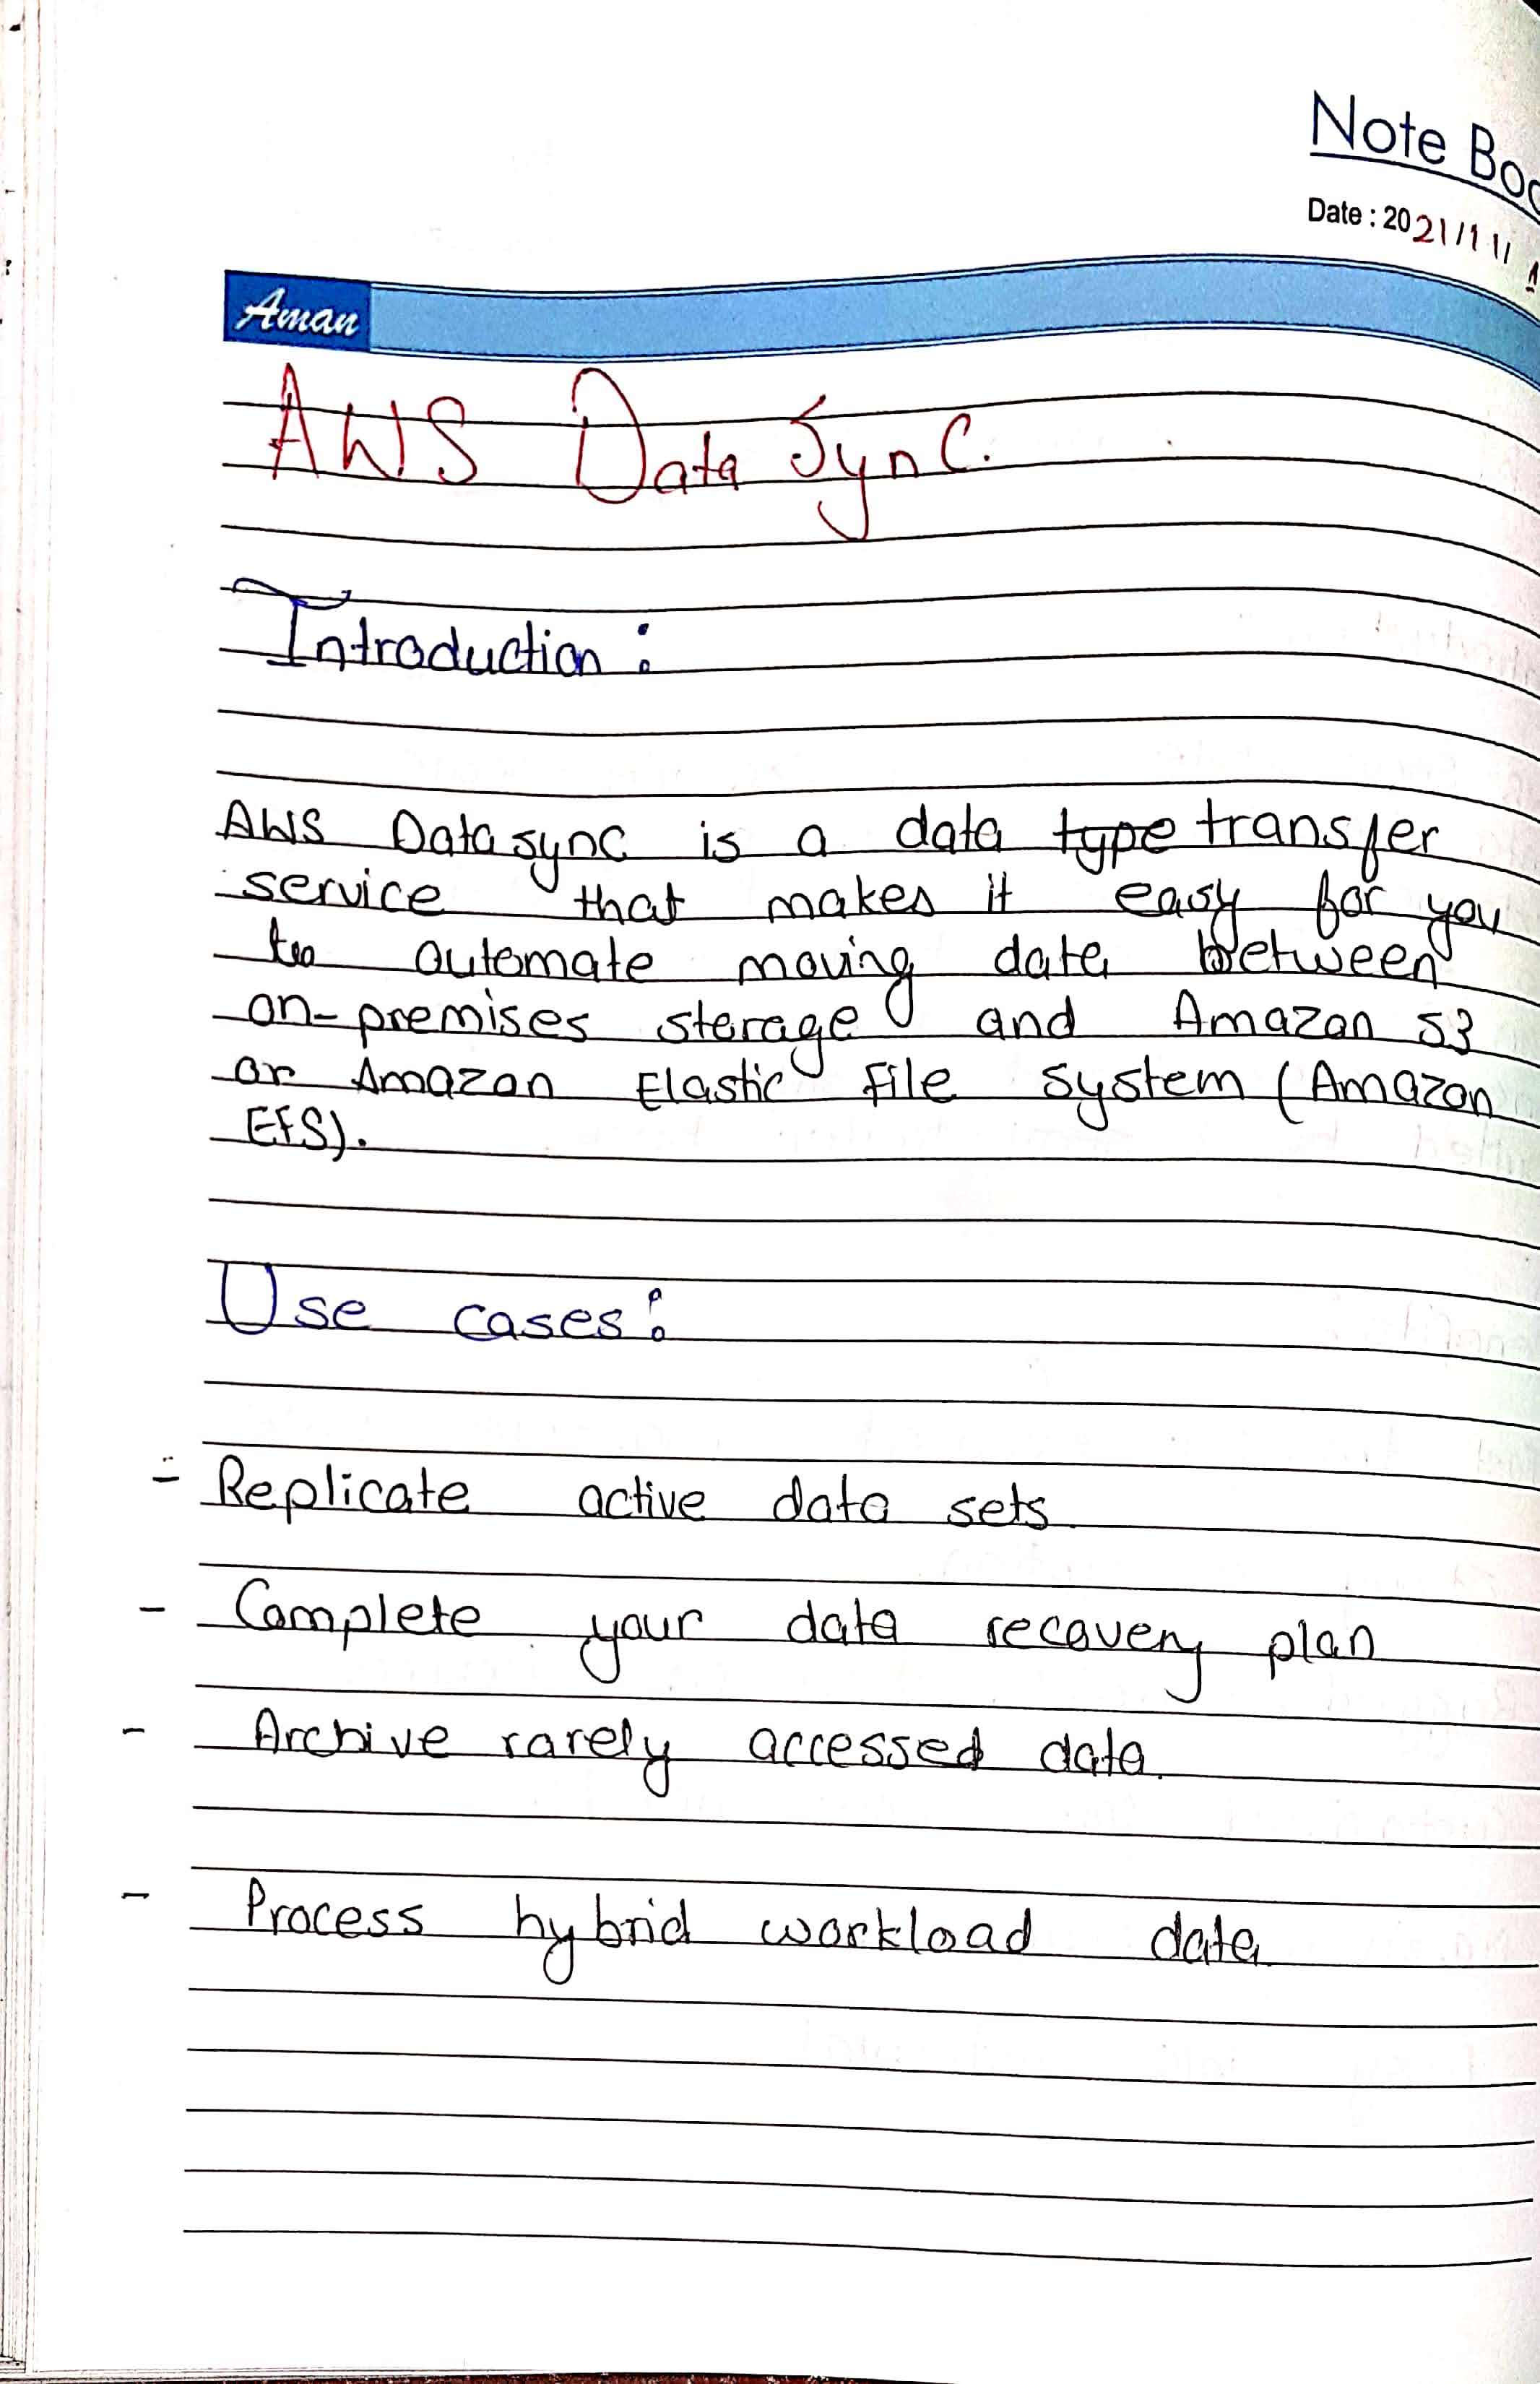 Note Boo
Date : 2021/11/
Aman
AWS Data Sync.
Introduction :
AWS Datasync is a data type transfer
service that makes it easy for you
to automate moving data between
on-premises storage and Amazon S3
or Amazon Elastic File System (Amazon
EFS).
Use cases :
- Replicate active data sets
- Complete your data recovery plan
- Archive rarely accessed data.
- Process hybrid workload data